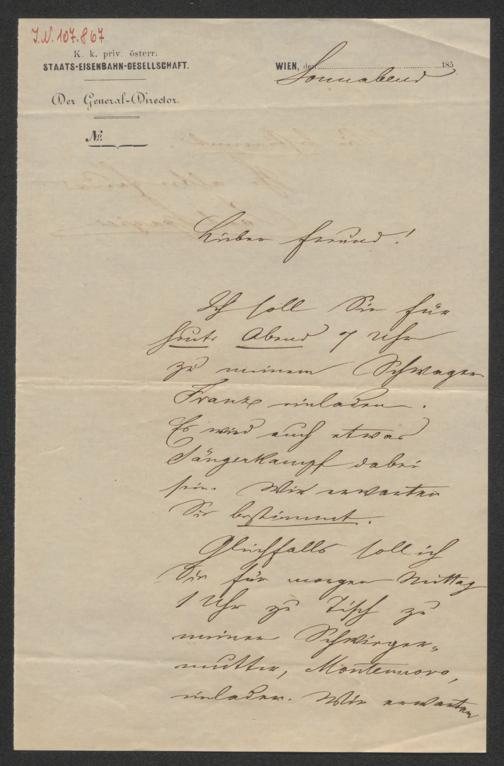 I.N. 107.867
K. k. priv. österr.
STAATS-EISENBAHN-GESELLSCHAFT.
WIEN, den 185
Sonnabend
Der General-Director.
No.
Lieber Freund!
Ich soll Sie für
heute Abend 7 Uhr
zu meinem Schwager
Franz einladen.
Es wird auch etwas
Sängerkampf dabei
sein. Wir erwarten
Sie bestimmt.
Gleichfalls soll ich
Sie für morgen Mittag
1 Uhr zu Tisch zu
meiner Schwieger-
mutter, Montenuovo,
einladen. Wir erwarten